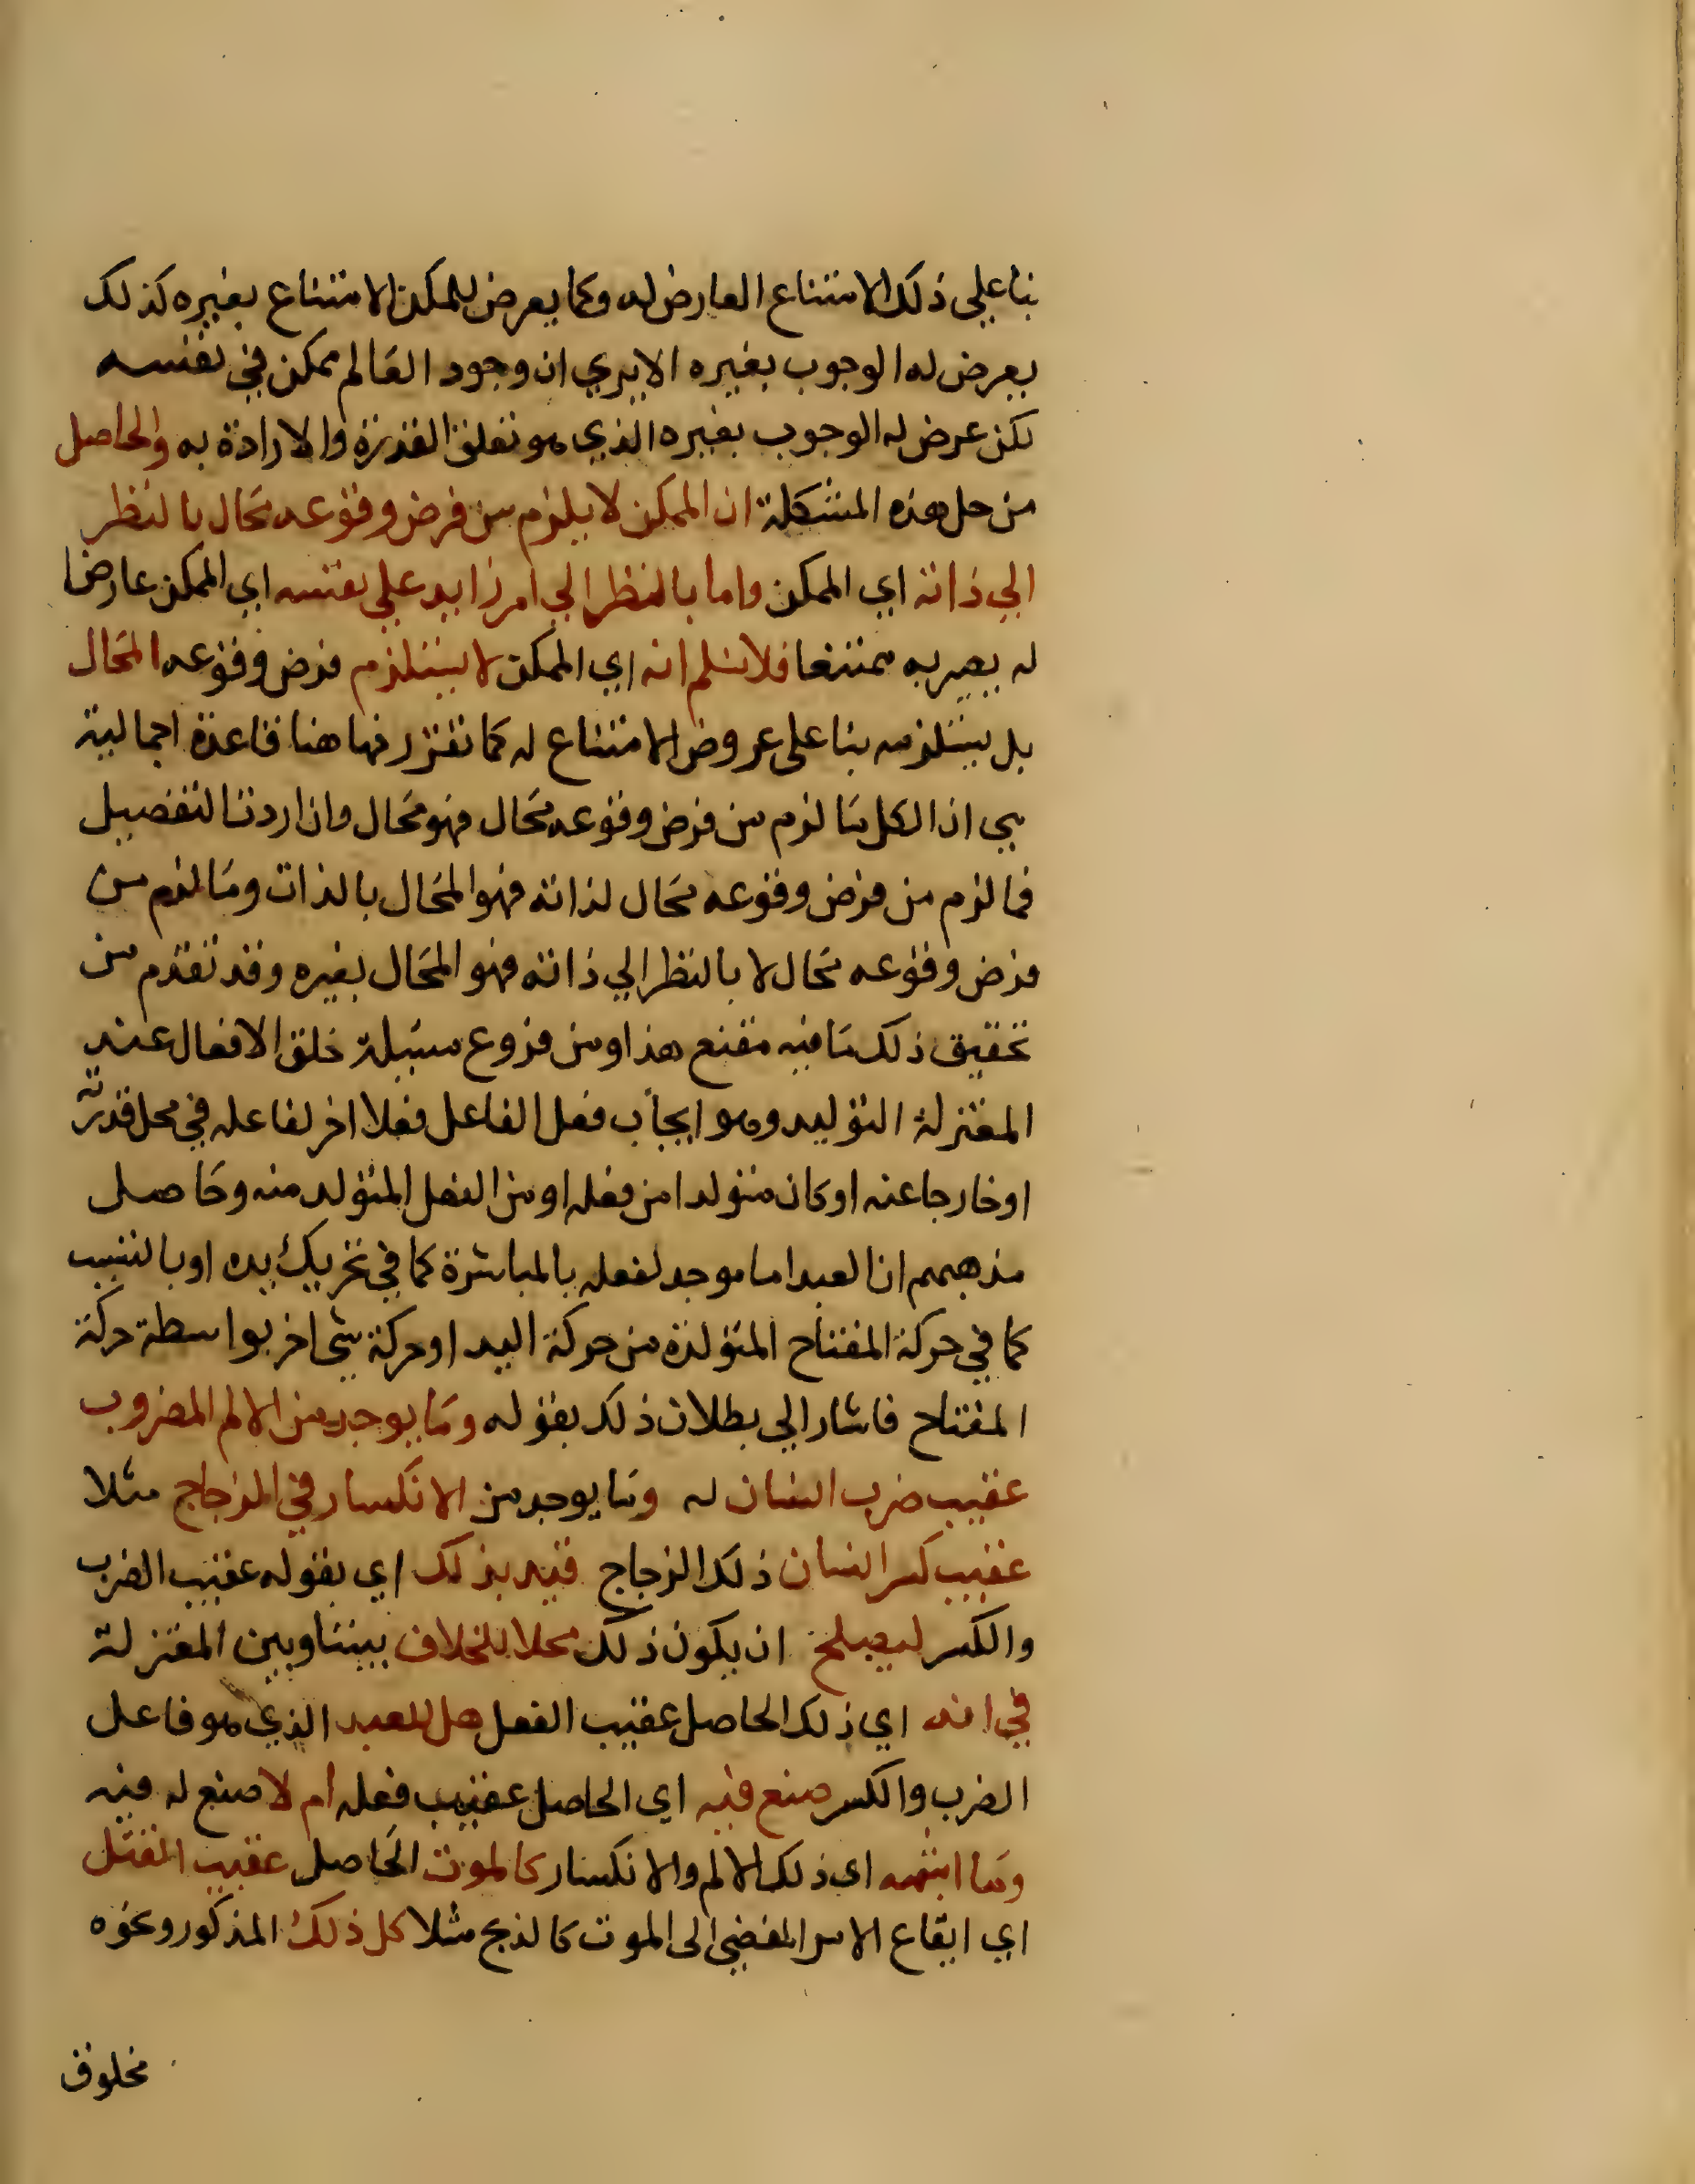 بنا على ذلك الامتناع العارض له وكما يعرض للممكن الامتناع بغيره كذلك
يعرض له الوجوب بغيره الا يري ان وجود العالم ممكن في نفسه
لكن عرض له الوجوب بغيره الذي هو تعلق القدرة والارادة به والحاصل
من حل هذه المشكلة ان الممكن لا يلزم من فرض وقوعه محال بالنظر
الي ذاته اي الممكن واما بالنظر الي امر زايد علي نفسه اي الممكن عارضا
له يصير به ممتنعا فلا نسلم انه اي الممكن لا يستلزم فرض وقوعه المحال
بل يستلزمه بنا على عروض الامتناع له كما تقرر فها هنا قاعدة اجمالية
هي ان الكل ما لزم من فرض وقوعه محال فهو محال وان اردت التفصيل
فما لزم من فرض وقوعه محال لذاته فهو المحال بالذات وما لزم من
فرض وقوعه محال لا بالنظر الي ذاته فهو المحال بغيره وقد تقدم من
تحقيق ذلك ما فيه مقنع هذا ومن فروع مسيلة خلق الافعال عند
المعتزلة التوليد وهو ايجاب فعل الفاعل فعلا اخر لفاعله في محل قدرته
او خارجا عنه او كان متولدا من فعله او من الفعل المتولد منه وحاصل
مذهبهم ان العبد اما موجد لفعله بالمباشرة كما في تحريك يده او بالتسبب
كما في حركة المفتاح المتولدة من حركة اليد او حركة شي اخر بواسطة حركة
المفتاح فاشار الي بطلان ذلك بقوله وما يوجد من الالم المضروب
عقيب ضرب انسان له وما يوجد من الانكسار في الزجاج مثلا
عقيب كسر انسان ذلك الزجاج قيد بذلك اي بقوله عقيب الضرب
والكسر ليصلح ان يكون ذلك محلا للخلاف بيننا وبين المعتزلة
في انه اي ذلك الحاصل عقيب الفعل هل للعبد الذي هو فاعل
الضرب والكسر صنع فيه اي الحاصل عقيب فعله ام لا صنع له فيه
وما اشبهه اي ذلك الالم والانكسار كالموت الحاصل عقيب القتل
اي ايقاع الامر المفضي الى الموت كالذبح مثلا كل ذلك المذكور ونحوه
مخلوق